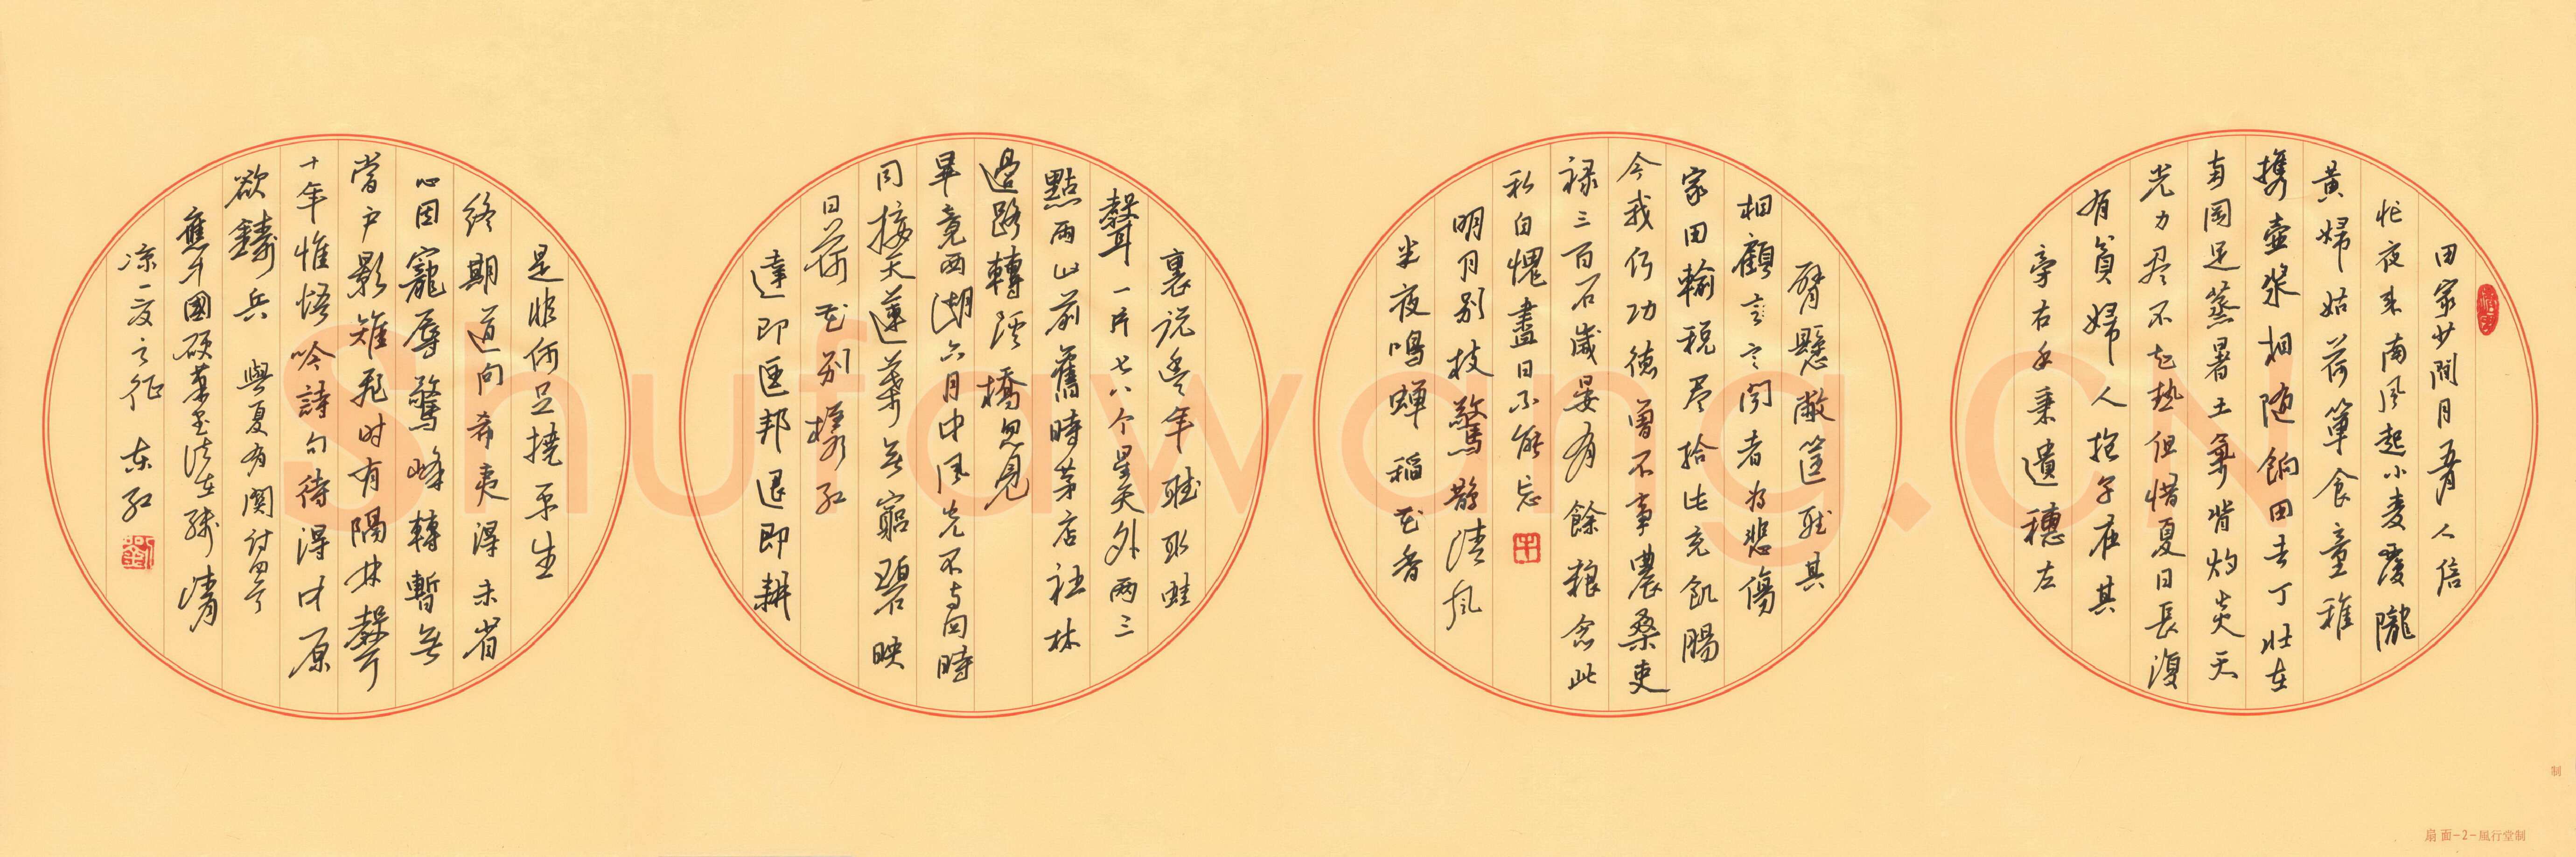 田家少閒月五月人倍
忙夜来南风起小麦覆隴
黄婦姑荷箪食童稚
携壶浆相随餉田去丁壮在
南岡足蒸暑土氣背灼炎天
光力尽不知热但惜夏日長復
有貧婦人抱子在其
旁右手秉遺穗左
臂懸敝筐聽其
相顧言言聞者为悲傷
家田輸税尽拾此充飢腸
今我何功德曾不事農桑吏
禄三百石歲晏有餘粮念此
私自愧盡日不能忘
明月别枝驚鹊清風
半夜鳴蝉稻花香
裏説豐年聽取蛙
聲一片七八个星天外兩三
點雨山前舊時茅店社林
邊路轉溪橋忽見
畢竟西湖六月中風光不与四時
同接天蓮葉無窮碧映
日荷花别樣红
達即匡邦退即耕
是非何足撓平生
終期道向希夷得未省
心因寵辱驚峰轉暫無
當户影雉飛时有隔林聲
十年惟悟吟詩句待得中原
欲鑄兵 與夏有関詩四首
國碩
凉一夏之作 东红
扇面-2-風行堂制
制
Shufawang.CN